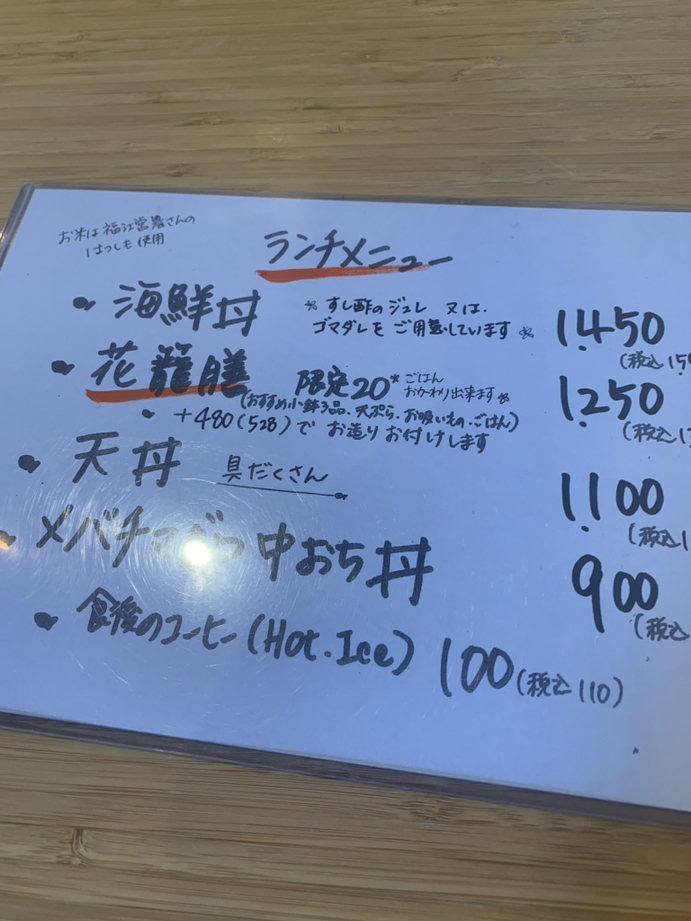 お米は福江営農さんの
はつしも使用
ランチメニュー
・海鮮丼 ※すし酢のジュレ 又は、 1,450
ゴマダレをご用意しています※ (税込15
・花籠膳 限定20 ※ごはん 1,250
おかわり出来ます※ (税込1
(おすすめ小鉢3品、天ぷら、お吸いもの、ごはん)
+480(528)で お造りお付けします
・天丼 具だくさん 1,100
(税込1
・メバチ 中おち丼 900
(税込
・食後のコーヒー(Hot.Ice) 100(税込110)